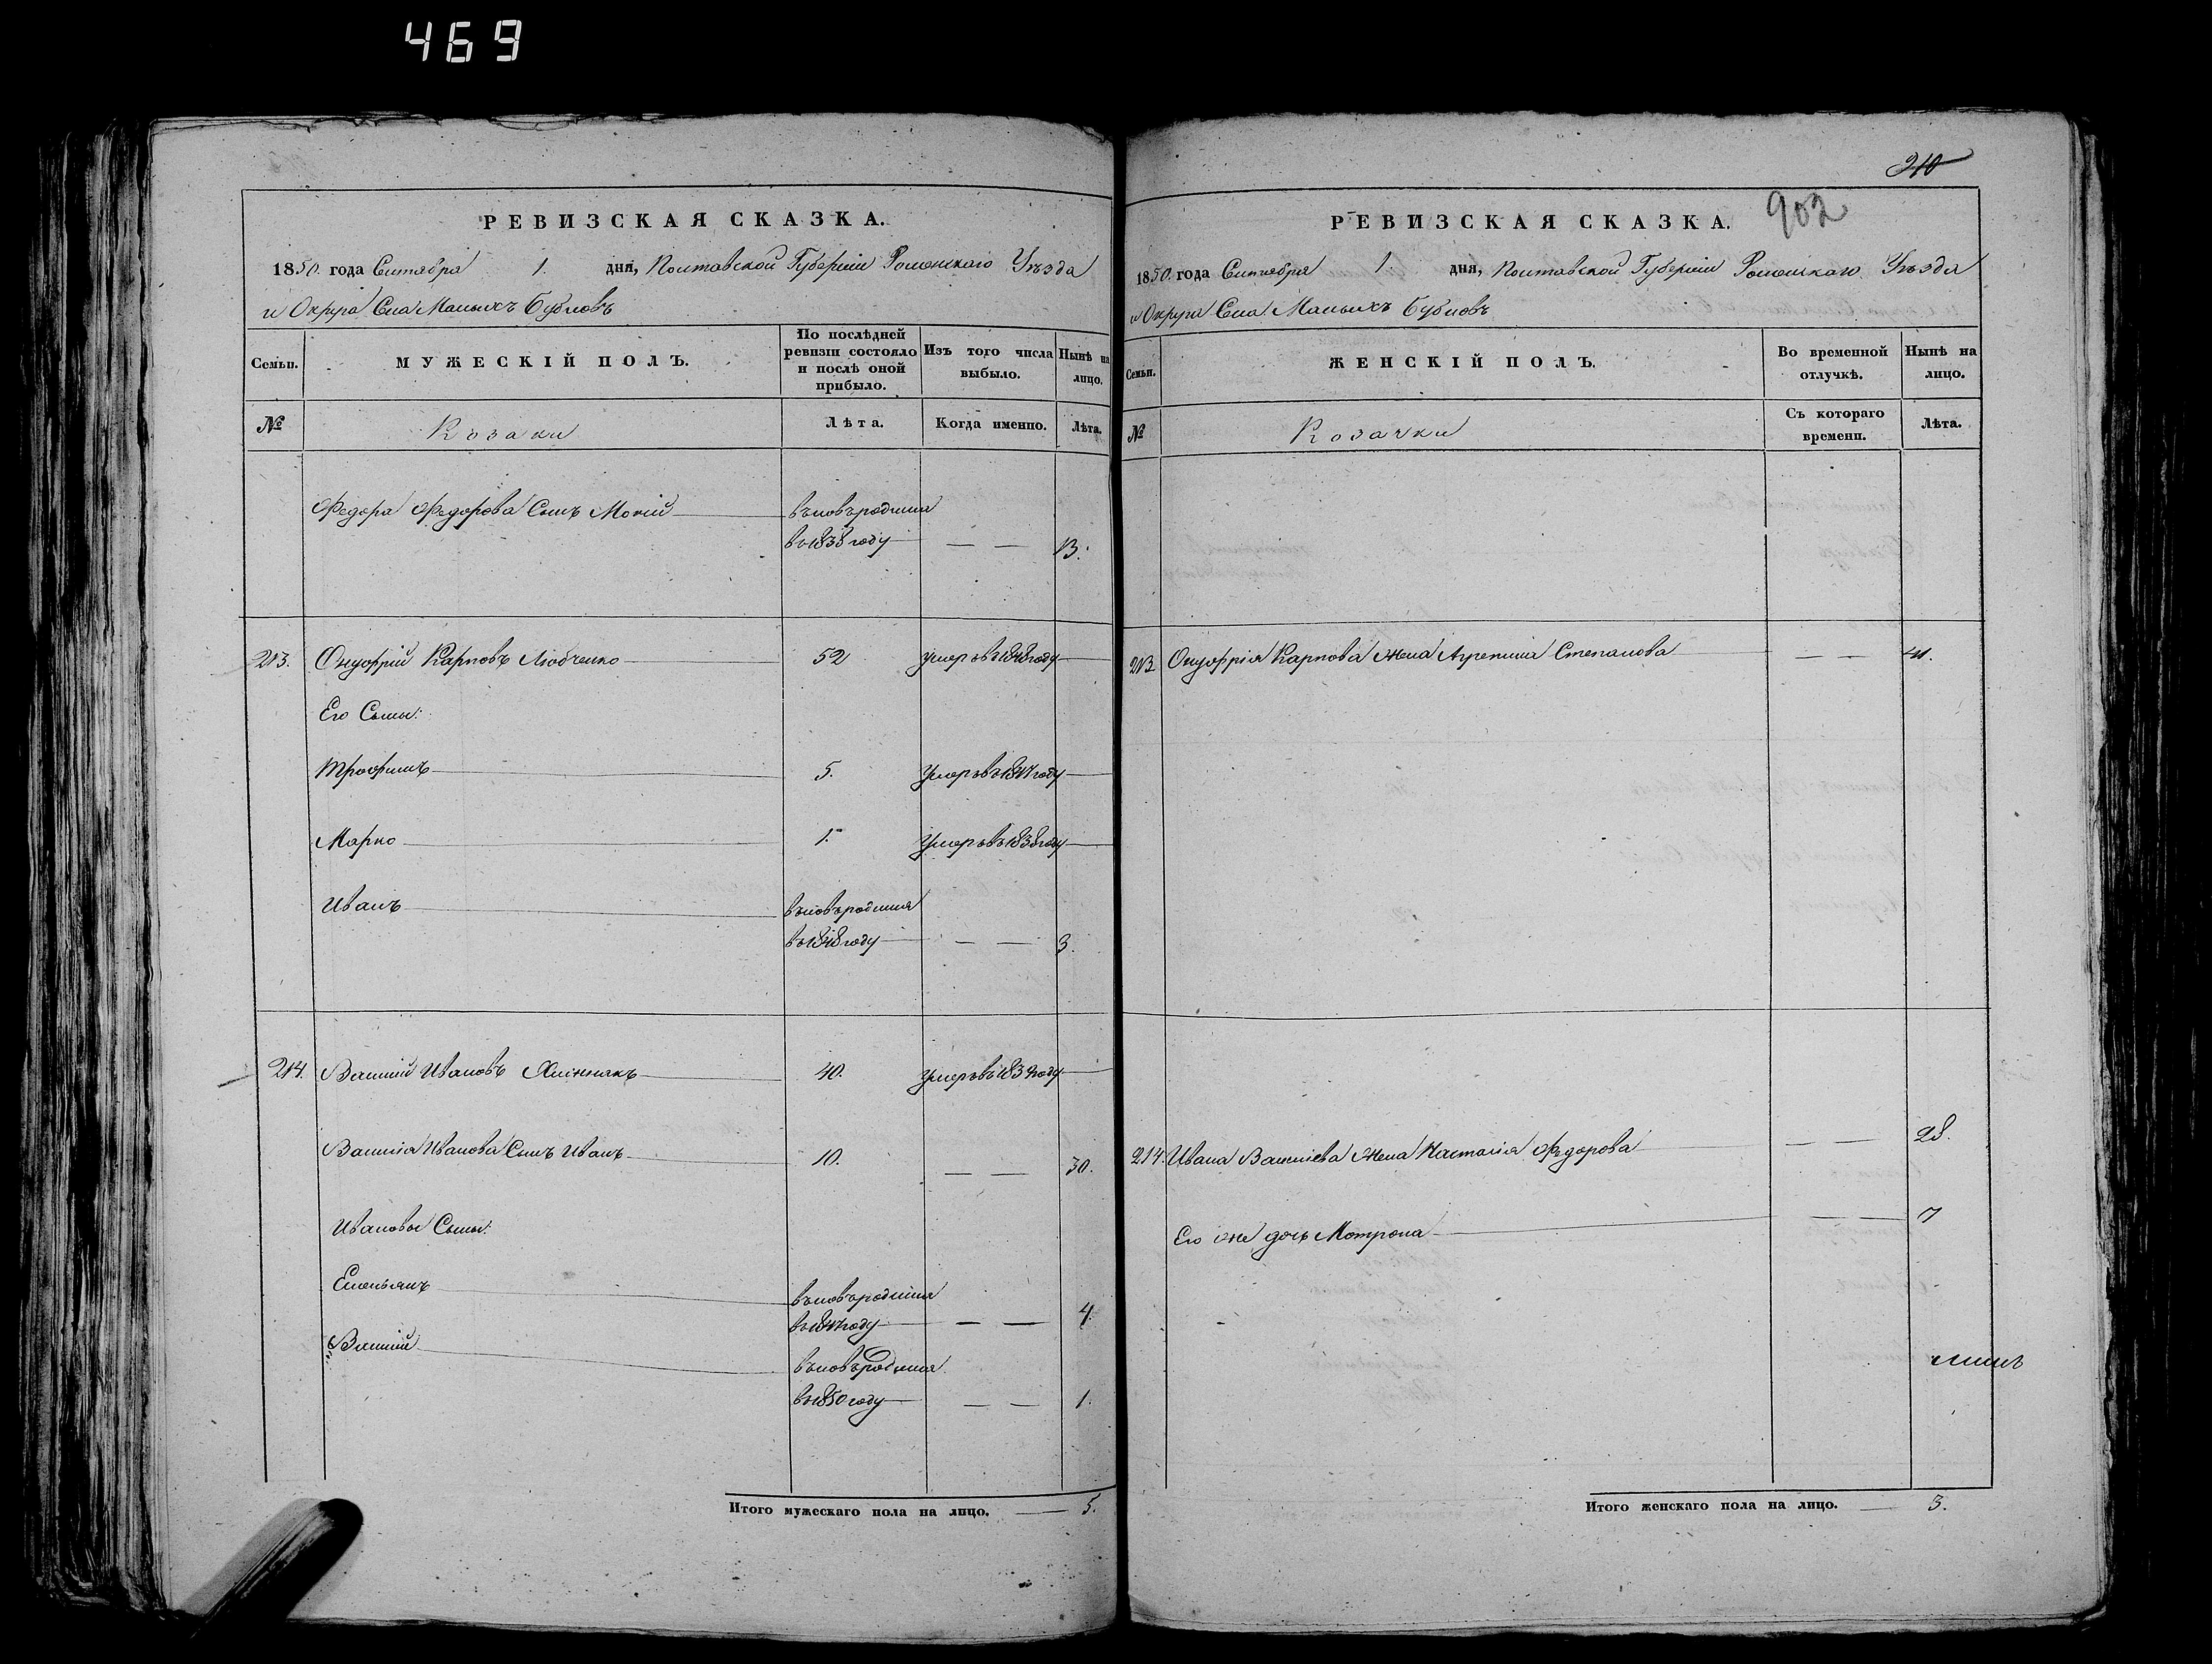 469
РЕВИЗСКАЯ СКАЗКА.
1850. года Сентября 1. дня, Полтавской Губернiи Роменскаго Уѣзда
и Округа Села Малыхъ Бубновъ
Семьи.
МУЖЕСКIЙ ПОЛЪ.
По послѣдней ревизiи состояло и послѣ оной прибыло.
Изъ того числа выбыло.
Нынѣ на лицо.
№
Козаки
Лѣта.
Когда именно.
Лѣта.
Федора Федорова Сынъ Мокiй вновьродился
въ 1838 году — — 13.
213. Онуфрiй Карповъ Любченко 52 умеръ въ 1848 году
Его Сыны:
Трофимъ 5. Умеръ въ году
Марко 1. Умеръ въ 1838 году
Иванъ вновьродился
въ 1848 году — — 3.
214. Василiй Ивановъ 40. умеръ въ 1839 году
Василiя Иванова Сынъ Иванъ 10. — — 30.
Ивановы Сыны:
Емельянъ вновьродился
въ 1847 году — — 4.
Василiй вновьродился
въ 1850 году — — 1.
Итого мужескаго пола на лицо. 5.
210
902
РЕВИЗСКАЯ СКАЗКА.
1850. года Сентября 1. дня, Полтавской Губернiи Роменскаго Уѣзда
и Округа Села Малыхъ Бубновъ
Семьи.
ЖЕНСКIЙ ПОЛЪ.
Во временной отлучкѣ.
Нынѣ на лицо.
№
Козачки
Съ котораго времени.
Лѣта.
213 Онуфрiя Карпова Жена Агрепина Степанова — — 41.
214. Ивана Василiева Жена Настасiя Федорова — — 28.
Его же дочь Мотрона — — 7
Итого женскаго пола на лицо. 3.